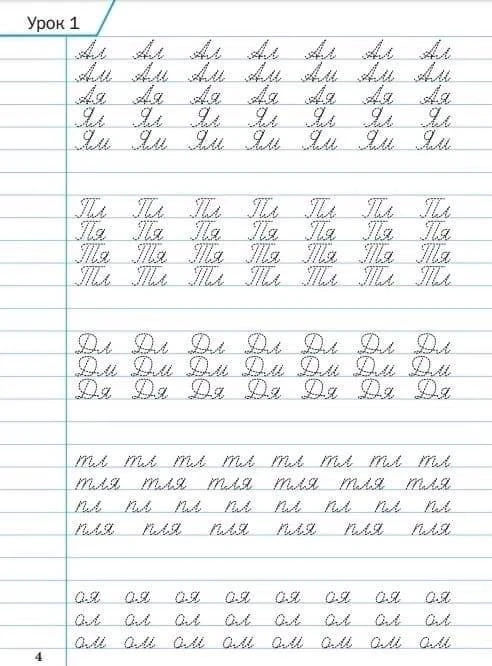 Урок 1
Ал Ал Ал Ал Ал Ал Ал
Ам Ам Ам Ам Ам Ам Ам
Ая Ая Ая Ая Ая Ая Ая
Ял Ял Ял Ял Ял Ял Ял
Ям Ям Ям Ям Ям Ям Ям
Пл Пл Пл Пл Пл Пл Пл
Пя Пя Пя Пя Пя Пя Пя
Тя Тя Тя Тя Тя Тя Тя
Тл Тл Тл Тл Тл Тл Тл
Дл Дл Дл Дл Дл Дл Дл
Дм Дм Дм Дм Дм Дм Дм
Дя Дя Дя Дя Дя Дя Дя
тл тл тл тл тл тл тл тл
тля тля тля тля тля тля
пл пл пл пл пл пл пл пл
пля пля пля пля пля пля
ая ая ая ая ая ая ая ая
ал ал ал ал ал ал ал ал
ам ам ам ам ам ам ам ам
4